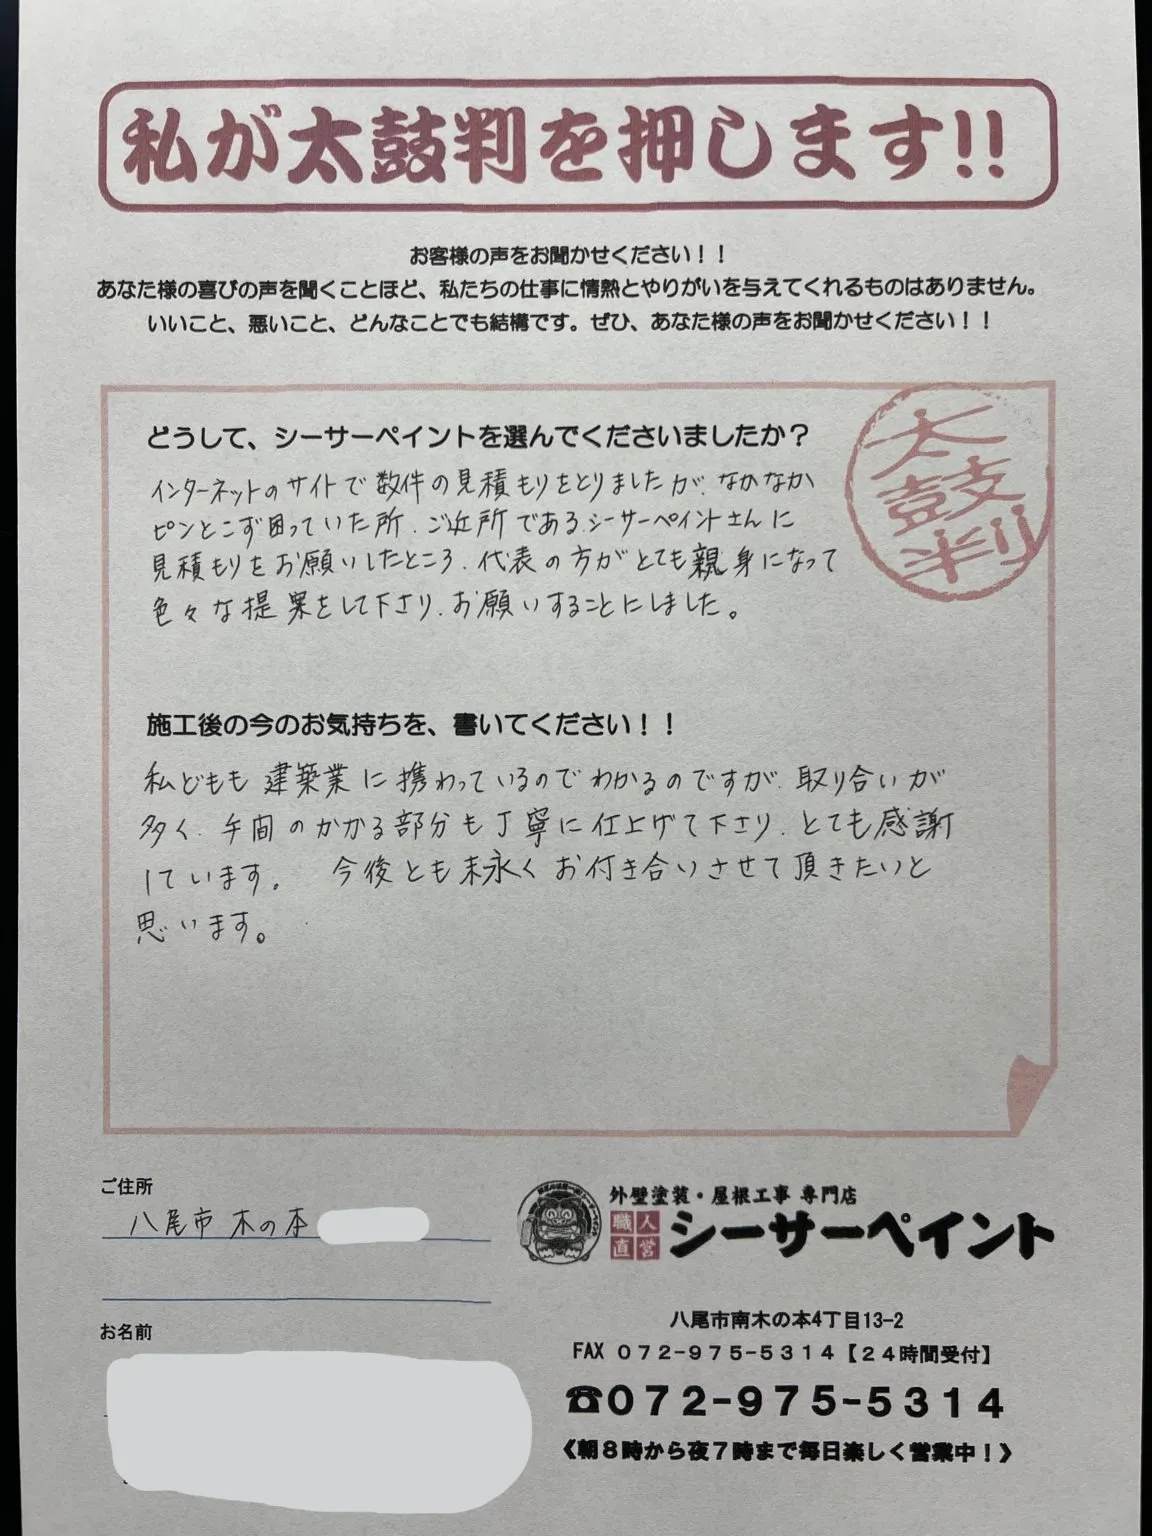 私が太鼓判を押します!!
お客様の声をお聞かせください！！
あなた様の喜びの声を聞くことほど、私たちの仕事に情熱とやりがいを与えてくれるものはありません。
いいこと、悪いこと、どんなことでも結構です。ぜひ、あなた様の声をお聞かせください！！
太鼓判
どうして、シーサーペイントを選んでくださいましたか？
インターネットのサイトで数件の見積もりをとりましたが、なかなか
ピンとこず困っていた所、ご近所であるシーサーペイントさんに
見積もりをお願いしたところ、代表の方がとても親身になって
色々な提案をして下さり、お願いすることにしました。
施工後の今のお気持ちを、書いてください！！
私どもも建築業に携わっているのでわかるのですが、取り合いが
多く、手間のかかる部分も丁寧に仕上げて下さり、とても感謝
しています。 今後とも末永くお付き合いさせて頂きたいと
思います。
ご住所
八尾市 木の本
お名前
外壁塗装・屋根工事 専門店
職人直営 シーサーペイント
八尾市南木の本4丁目13-2
FAX ０７２-９７５-５３１４【２４時間受付】
☎０７２-９７５-５３１４
《朝８時から夜７時まで毎日楽しく営業中！》